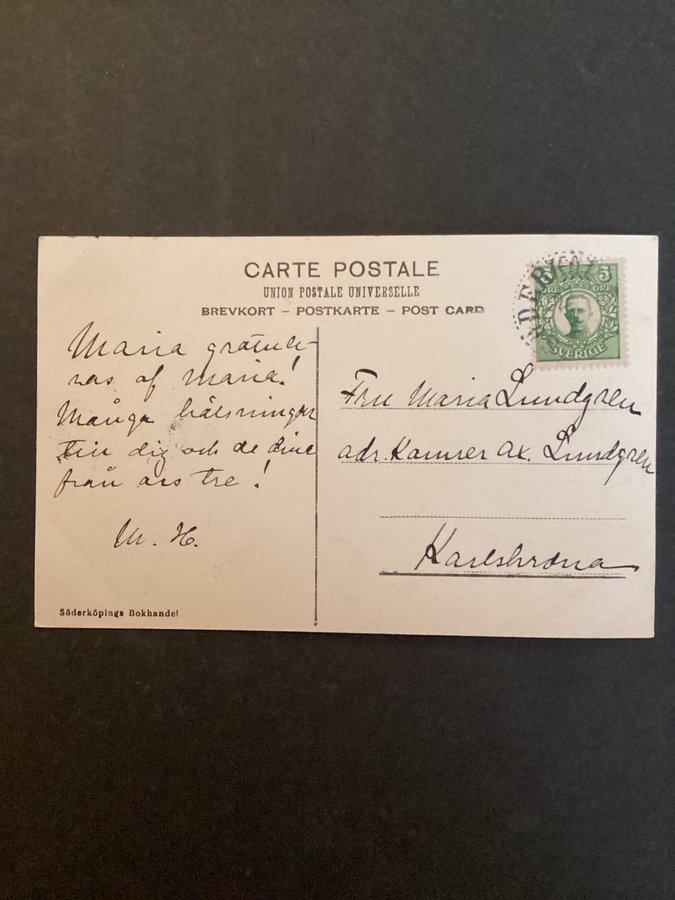 CARTE POSTALE
UNION POSTALE UNIVERSELLE
BREVKORT – POSTKARTE – POST CARD
5
ÖRE ÖRE
SVERIGE
Maria gratule-
ras af Maria!
Många hälsningar
till dig och de dina
från oss tre!
M. H.
Söderköpings Bokhandel
Fru Maria Lundgren
adr. Kamrer Ax. Lundgren
Karlskrona